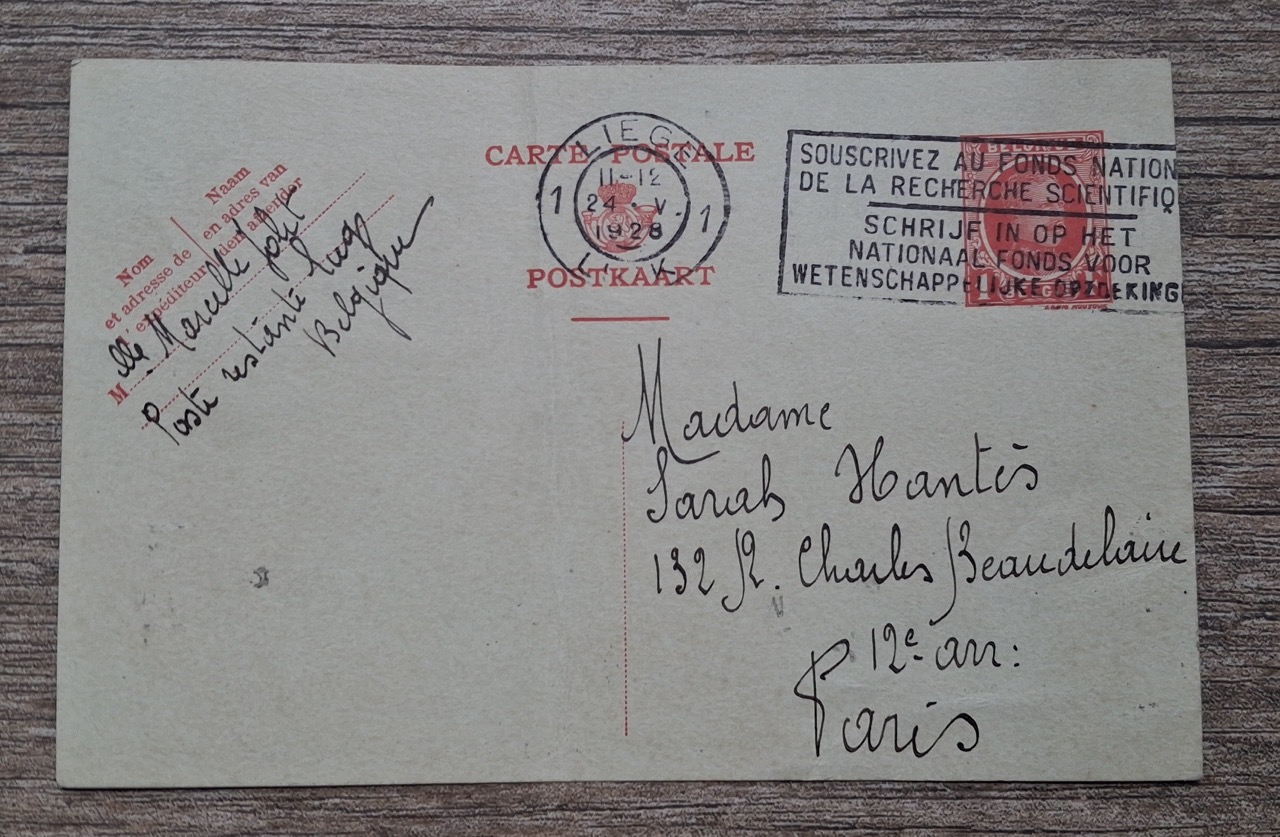 CARTE POSTALE
POSTKAART
Nom
et adresse de
l'expéditeur
Naam
en adres van
den afzender
Mlle Marcelle
Poste restante
Belgique
LIEGE
11-12
24 · V.
1928
1 1
L. K.
SOUSCRIVEZ AU FONDS NATION
DE LA RECHERCHE SCIENTIFIQ
SCHRIJF IN OP HET
NATIONAAL FONDS VOOR
WETENSCHAPPELIJKE OPZOEKING
Madame
Sarah Hantès
132 R. Charles Beaudelaire
12e arr:
Paris